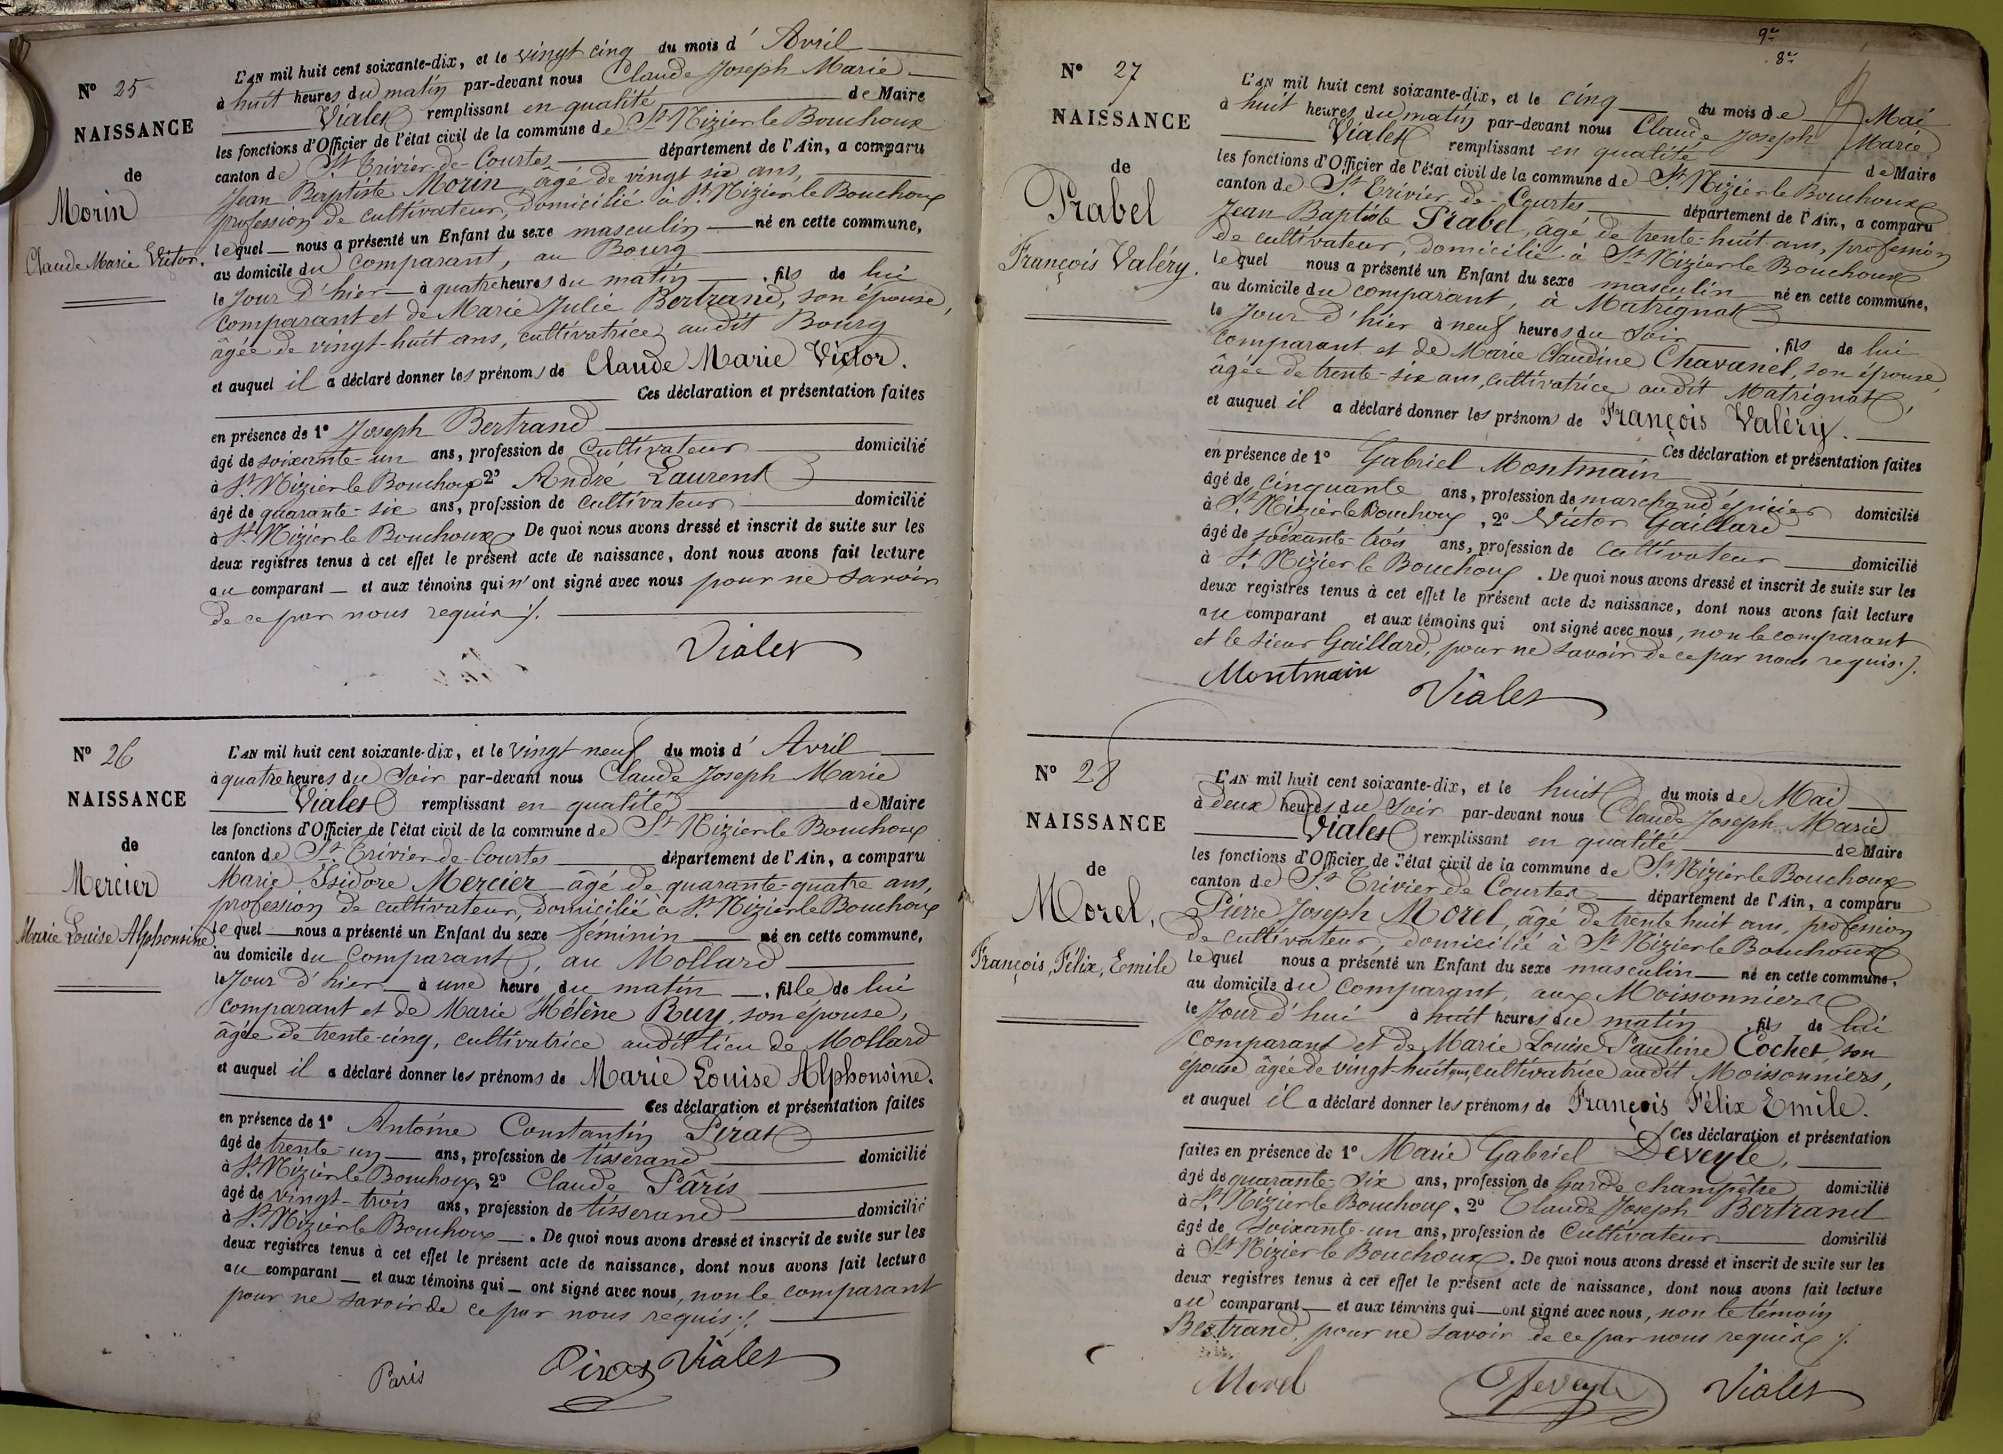 N° 25
NAISSANCE
de
Morin
Claude Marie Victor.
L'AN mil huit cent soixante-dix, et le vingt cinq du mois d'Avril
à huit heures du matin par-devant nous Claude Joseph Marie
Vialet remplissant en qualité de Maire
les fonctions d'Officier de l'état civil de la commune de St Nizier le Bouchoux
canton de St Trivier-de-Courtes département de l'Ain, a comparu
Jean Baptiste Morin âgé de vingt six ans,
profession de cultivateur, domicilié à St Nizier le Bouchoux
lequel nous a présenté un Enfant du sexe masculin né en cette commune,
au domicile du comparant, au Bourg
le Jour d'hier à quatre heures du matin, fils de lui
comparant et de Marie Julie Bertrand, son épouse,
âgée de vingt-huit ans, cultivatrice audit Bourg
et auquel il a déclaré donner les prénoms de Claude Marie Victor.
Ces déclaration et présentation faites
en présence de 1° Joseph Bertrand
âgé de soixante-un ans, profession de cultivateur domicilié
à St Nizier le Bouchoux 2° André Laurent
âgé de quarante-six ans, profession de cultivateur domicilié
à St Nizier le Bouchoux. De quoi nous avons dressé et inscrit de suite sur les
deux registres tenus à cet effet le présent acte de naissance, dont nous avons fait lecture
au comparant et aux témoins qui n'ont signé avec nous pour ne savoir
de ce par nous requis ./.
Vialet
N° 26
NAISSANCE
de
Mercier
Marie Louise Alphonsine.
L'AN mil huit cent soixante-dix, et le vingt neuf du mois d'Avril
à quatre heures du soir par-devant nous Claude Joseph Marie
Vialet remplissant en qualité de Maire
les fonctions d'Officier de l'état civil de la commune de St Nizier le Bouchoux
canton de St Trivier-de-Courtes département de l'Ain, a comparu
Marie Isidore Mercier âgé de quarante-quatre ans,
profession de cultivateur, domicilié à St Nizier le Bouchoux
lequel nous a présenté un Enfant du sexe féminin né en cette commune,
au domicile du comparant, au Mollard
le Jour d'hier à une heure du matin, fille de lui
comparant et de Marie Hélène Ruy, son épouse,
âgée de trente-cinq, cultivatrice audit lieu de Mollard
et auquel il a déclaré donner les prénoms de Marie Louise Alphonsine.
Ces déclaration et présentation faites
en présence de 1° Antoine Constantin Pirat
âgé de trente-un ans, profession de tisserand domicilié
à St Nizier le Bouchoux, 2° Claude Paris
âgé de vingt-trois ans, profession de tisserand domicilié
à St Nizier le Bouchoux. De quoi nous avons dressé et inscrit de suite sur les
deux registres tenus à cet effet le présent acte de naissance, dont nous avons fait lecture
au comparant et aux témoins qui ont signé avec nous, non le comparant
pour ne savoir de ce par nous requis ./.
Paris Pirat Vialet
9e
8e
N° 27
NAISSANCE
de
Prabel
François Valéry.
L'AN mil huit cent soixante-dix, et le cinq du mois de Mai
à huit heures du matin par-devant nous Claude Joseph Marie
Vialet remplissant en qualité de Maire
les fonctions d'Officier de l'état civil de la commune de St Nizier le Bouchoux
canton de St Trivier-de-Courtes département de l'Ain, a comparu
Jean Baptiste Prabel, âgé de trente-huit ans, profession
de cultivateur, domicilié à St Nizier le Bouchoux
lequel nous a présenté un Enfant du sexe masculin né en cette commune,
au domicile du comparant, à Matrignat
le Jour d'hier à neuf heures du soir, fils de lui
comparant et de Marie Claudine Chavanel, son épouse,
âgée de trente-six ans, cultivatrice audit Matrignat,
et auquel il a déclaré donner les prénoms de François Valéry.
Ces déclaration et présentation faites
en présence de 1° Gabriel Montmain
âgé de cinquante ans, profession de marchand épicier domicilié
à St Nizier le Bouchoux, 2° Victor Gaillard
âgé de soixante-trois ans, profession de cultivateur domicilié
à St Nizier le Bouchoux. De quoi nous avons dressé et inscrit de suite sur les
deux registres tenus à cet effet le présent acte de naissance, dont nous avons fait lecture
au comparant et aux témoins qui ont signé avec nous, non le comparant
et le sieur Gaillard, pour ne savoir de ce par nous requis ./.
Montmain Vialet
N° 28
NAISSANCE
de
Morel,
François, Félix, Emile
L'AN mil huit cent soixante-dix, et le huit du mois de Mai
à deux heures du soir par-devant nous Claude Joseph Marie
Vialet remplissant en qualité de Maire
les fonctions d'Officier de l'état civil de la commune de St Nizier le Bouchoux
canton de St Trivier de Courtes département de l'Ain, a comparu
Pierre Joseph Morel, âgé de trente huit ans, profession
de cultivateur, domicilié à St Nizier le Bouchoux
lequel nous a présenté un Enfant du sexe masculin né en cette commune,
au domicile du comparant, aux Moissonniers
le Jour d'hui à huit heures du matin, fils de lui
comparant et de Marie Louise Pauline Cochet, son
épouse âgée de vingt-huit ans, cultivatrice audit Moissonniers,
et auquel il a déclaré donner les prénoms de François Félix Emile.
Ces déclaration et présentation
faites en présence de 1° Marie Gabriel Deveyle,
âgé de quarante-six ans, profession de Garde champêtre domicilié
à St Nizier le Bouchoux, 2° Claude Joseph Bertrand
âgé de soixante-un ans, profession de cultivateur domicilié
à St Nizier le Bouchoux. De quoi nous avons dressé et inscrit de suite sur les
deux registres tenus à cet effet le présent acte de naissance, dont nous avons fait lecture
au comparant et aux témoins qui ont signé avec nous, non le témoin
Bertrand, pour ne savoir de ce par nous requis ./.
Morel Deveyle Vialet